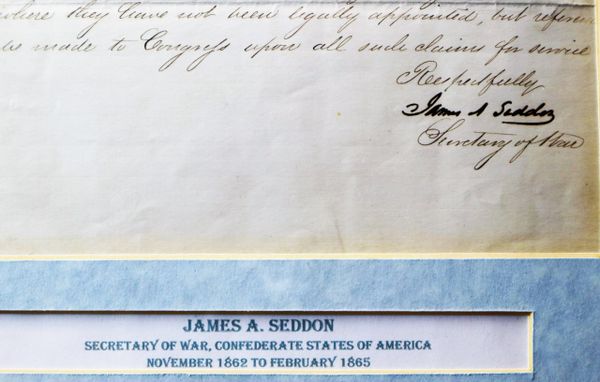 where they have not been legally appointed, but referen
be made to Congress upon all such claims for service
Respectfully
James A Seddon
Secretary of War
JAMES A. SEDDON
SECRETARY OF WAR, CONFEDERATE STATES OF AMERICA
NOVEMBER 1862 TO FEBRUARY 1865